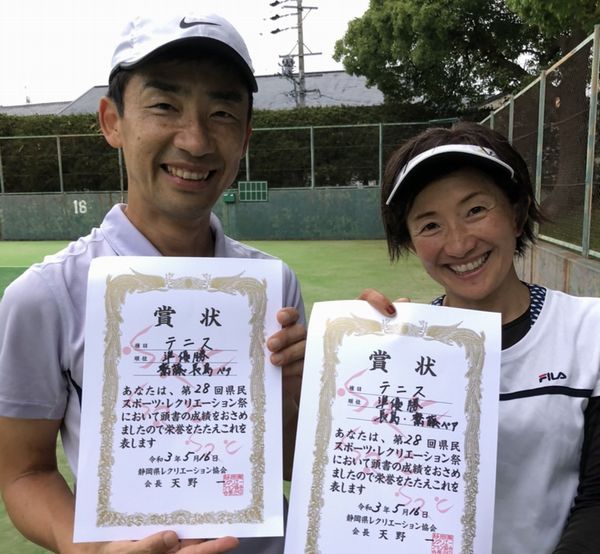 16
賞状
種目 テニス
順位 準優勝
齋藤・長島ペア
あなたは、第28回県民
スポーツ・レクリエーション祭
において頭書の成績をおさめ
ましたので栄誉をたたえこれを
表します
令和3年5月16日
静岡県レクリエーション協会
会長 天野 一
賞状
種目 テニス
順位 準優勝
長島・齋藤ペア
あなたは、第28回県民
スポーツ・レクリエーション祭
において頭書の成績をおさめ
ましたので栄誉をたたえこれを
表します
令和3年5月16日
静岡県レクリエーション協会
会長 天野 一
FILA